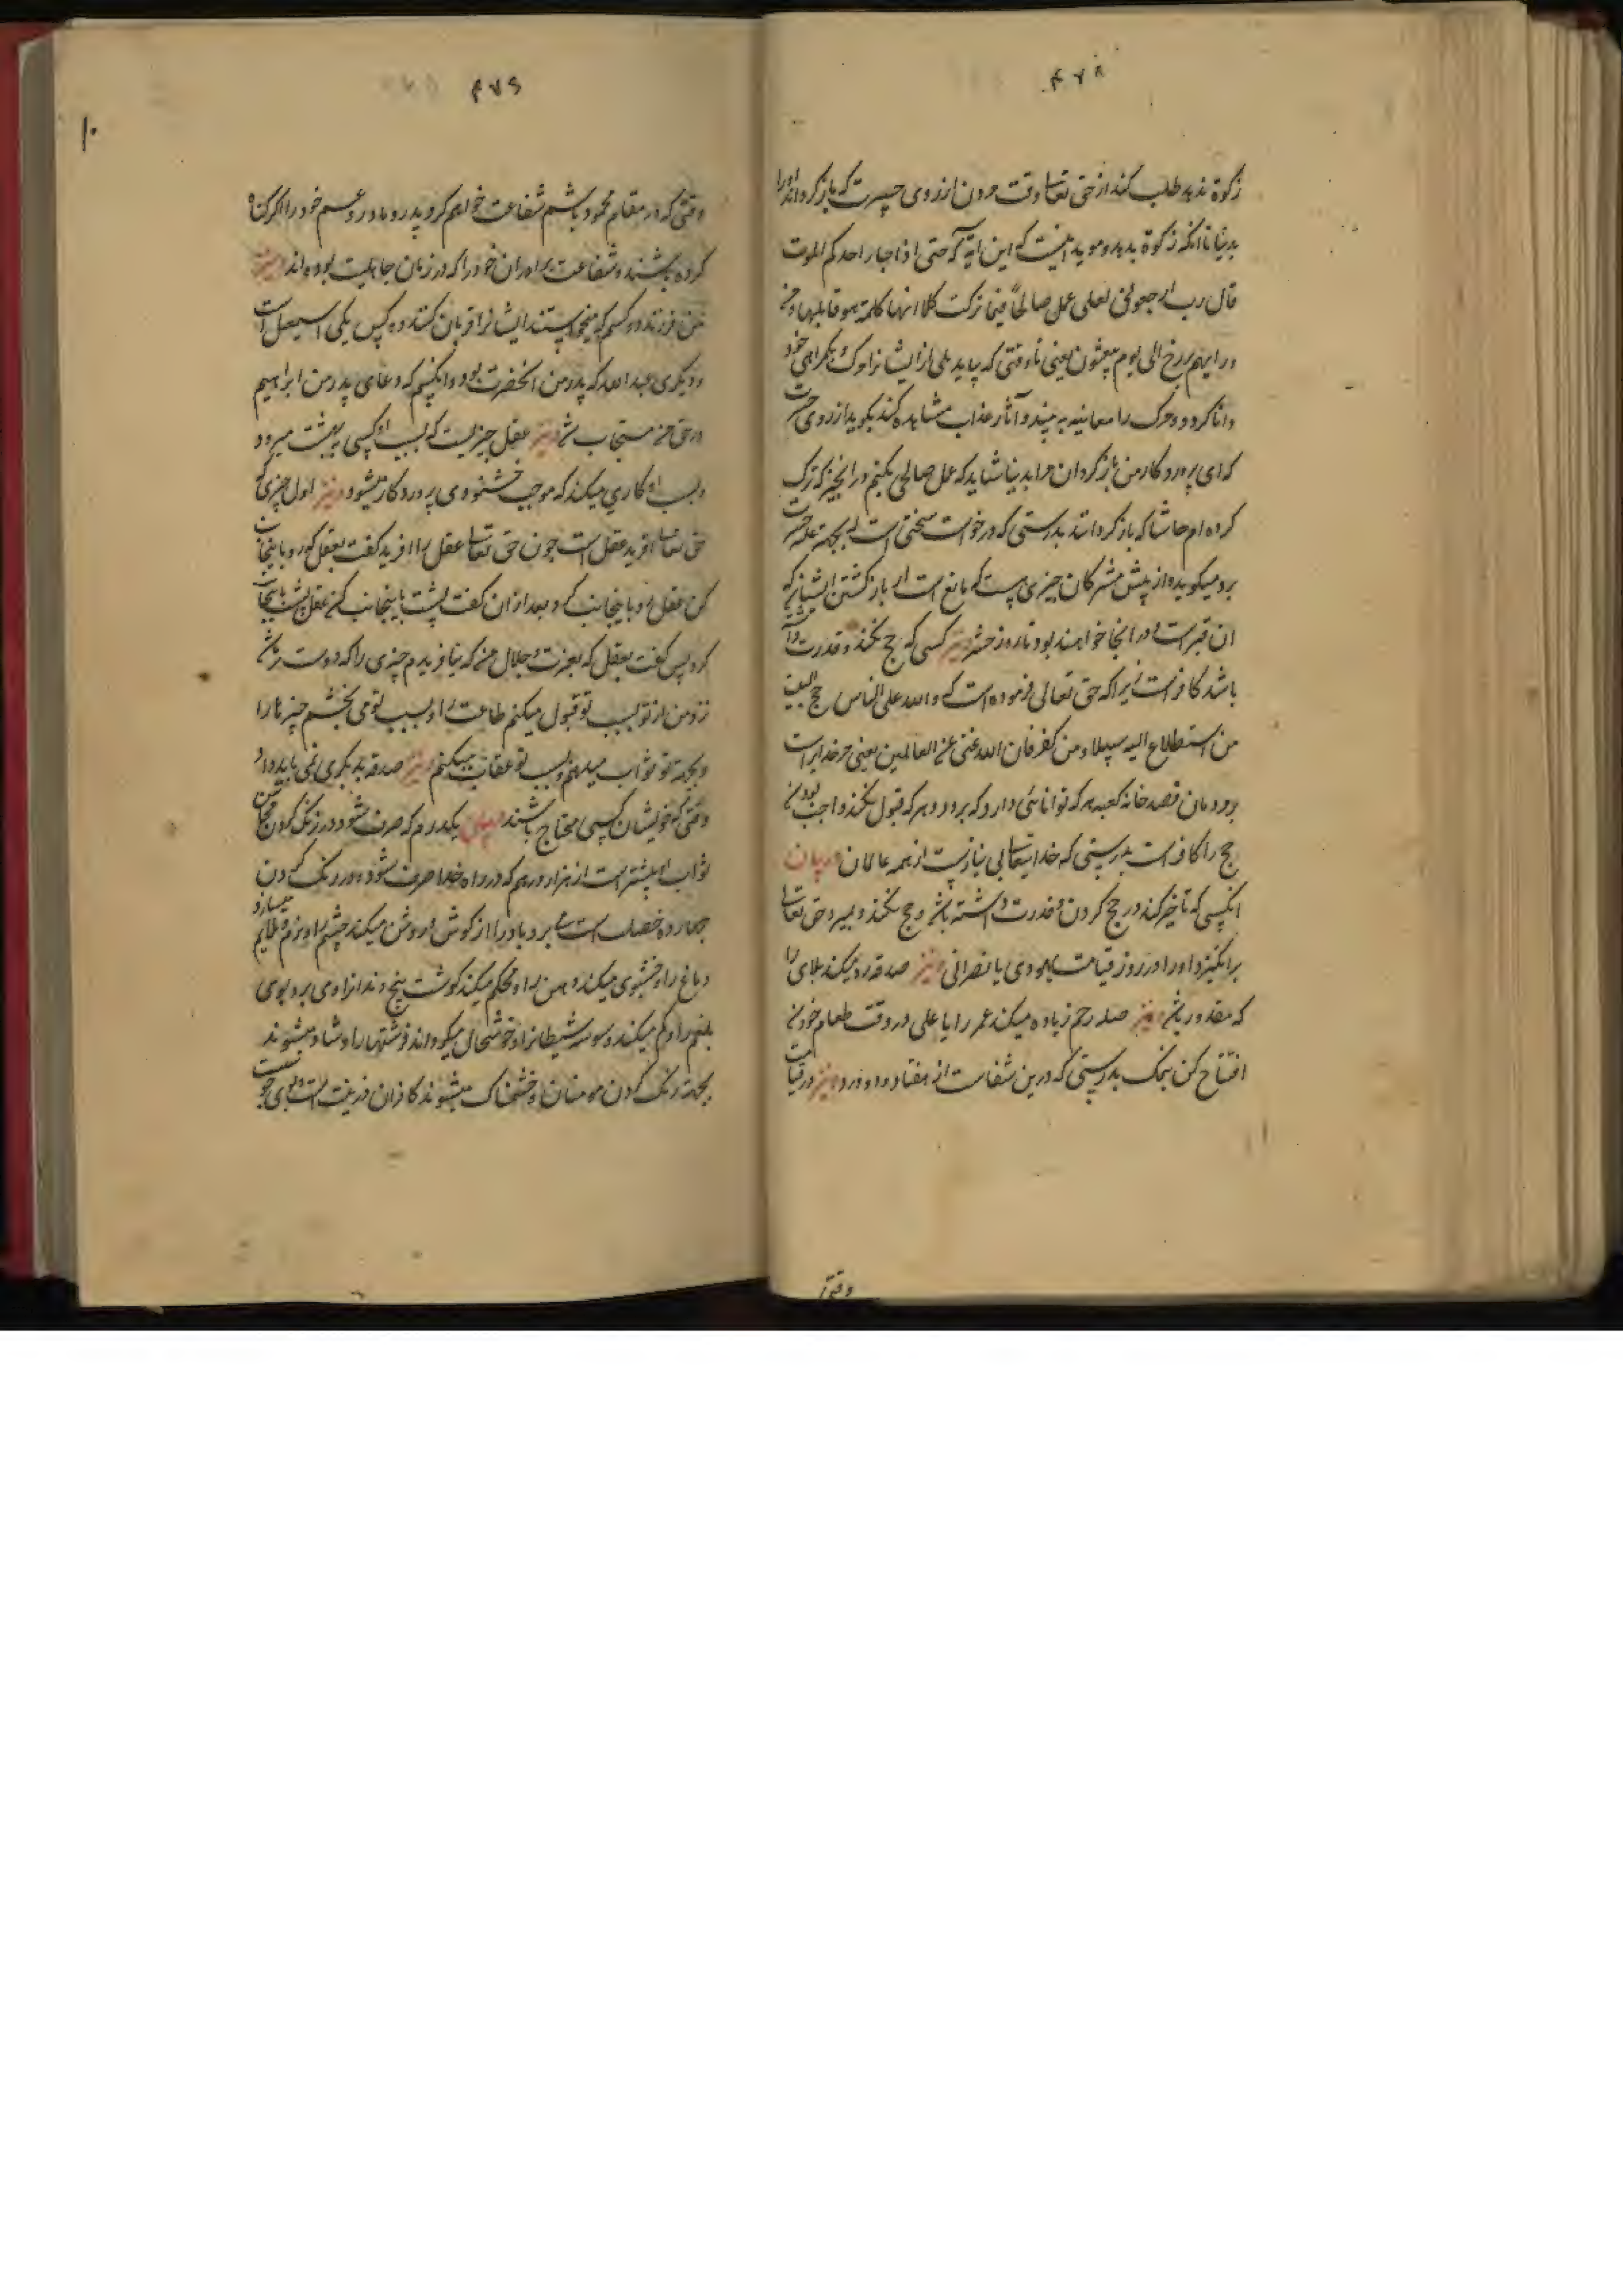 ۴۷۸
زکوة ندهد طلب کند از حق تعالی وقت مردن از روی حسرت که باز کرداند او را
بدنیا تا انکه زکوة بدهد و موید اینست که این آیة که حتی اذا جاء احدکم الموت
قال رب ارجعونی لعلی اعمل صالحاً فیما ترکت کلا انها کلمة هو قایلها و من
ورایهم برزخ الی یوم یبعثون یعنی تا وقتی که بیاید یکی از ایشان را مرک بکمراهی خود
دانا کردد و مرک را معاینه به بیند و آثار عذاب مشاهده کند بکوید از روی حسرت
که ای پروردکار من باز کردان مرا بدنیا شاید که عمل صالحی بکنم در انچیز که ترک
کرده ام حاشا که باز کردانند بدرستی که درخواست سخنی است که بجهة غلبه حسرت
برو میکوید و از پیش مشرکان چیزی هست که مانع است از باز کشتن ایشان که
ان قبر است و در انجا خواهند بود تا روز حشر و نیز کسی که حج نکند و قدرت داشته
باشد کافر است زیرا که حق تعالی فرموده است که و لله علی الناس حج البیت
من استطاع الیه سبیلا و من کفر فان الله غنی عن العالمین یعنی مر خدایراست
بر مردمان قصد خانه کعبه هر که توانائی دارد که برود و هر که قبول نکند واجب بودن
حج را کافر است بدرستی که خدایتعالی بی نیاز است از همه عالمان و بیان
انکسی که تاخیر کند در حج کردن و قدرت داشته باشد و حج نکند و بمیرد حق تعالی
برانکیزد او را در روز قیامت یهودی یا نصرانی و نیز صدقه رد میکند بلای را
که مقدور باشد و نیز صله رحم زیاده میکند عمر را یا علی در وقت طعام خوردن
افتتاح کن بنمک بدرستی که درین شفاست از هفتاد و دو درد و نیز در قیامت
وقتی
۴۷۹
۱۰
وقتی که در مقام محمود باشم شفاعت خواهم کرد پدر و مادر و عم خود را اکر کناه
کرده باشند و شفاعت برادران خود را که در زمان جاهلیت بوده اند و نیز
من فرزند دو کسم که میخواستند ایشانرا قربان کنند و کس یکی اسمعیل است
و دیکری عبدالله که پدر من انحضرت بود و انکسم که دعای پدر من ابراهیم
در حق من مستجاب شد و نیز عقل چیزیست که بسبب او کسی به بهشت میرود
و بسبب او کاری میکند که موجب خشنودی پروردکار میشود و نیز اول چیزی که
حق تعالی افرید عقل است چون حق تعالی عقل را افرید کفت بعقل که رو باینجانب
کن عقل رو باینجانب کرد بعد از ان کفت پشت باینجانب کن عقل پشت باینجانب
کرد پس کفت بعقل که بعزت و جلال من که نیافریدم چیزی را که دوست تر باشد
نزد من از تو بسبب تو قبول میکنم طاعت را و بسبب تو می بخشم چیزها را
و بجهة تو ثواب میدهم و بسبب تو عقاب میکنم و نیز صدقه بدیکری نمی باید داد
وقتی که خویشان کسی محتاج باشند و بیان یکدرم که صرف شود در رنک کردن محاسن
ثواب او بیشتر است از هزار درهم که در راه خدا صرف شود و در رنک کردن
چهارده خصلت است می برد باد را از کوش و روشن میکند چشم را و نرم و ملایم میسازد
دماغ را و خشبوی میکند دهن را و محکم میکند کوشت بیخ دندانرا و می برد بوی
بلغم را و کم میکند وسوسه شیطانرا و خوشحال میکرداند فرشتهارا و شاد میشوند
بجهة رنک کردن مومنان و خشمناک میشوند کافران و زینت است و بوی خوبست